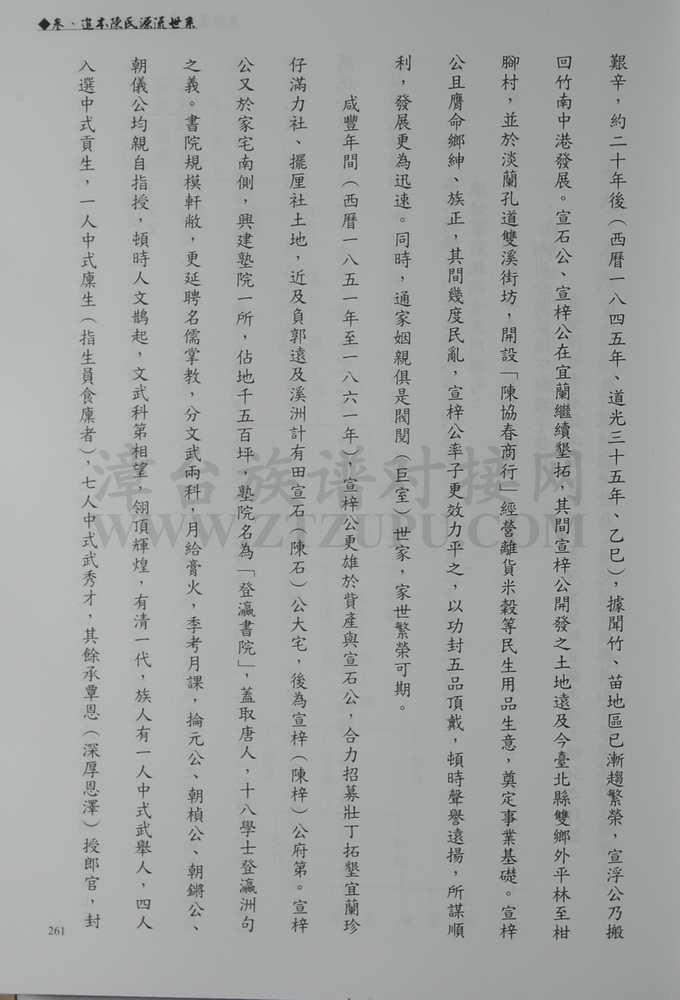 ◆參、追本陳氏源流世系
艱辛，約二十年後（西曆一八四五年、道光三十五年、乙巳），據聞竹、苗地區已漸趨繁榮，宣浮公乃搬
回竹南中港發展。宣石公、宣梓公在宜蘭繼續墾拓，其間宣梓公開發之土地遠及今臺北縣雙鄉外平林至柑
腳村，並於淡蘭孔道雙溪街坊，開設「陳協春商行」經營離貨米穀等民生用品生意，奠定事業基礎。宣梓
公且膺命鄉紳、族正，其間幾度民亂，宣梓公率子更效力平之，以功封五品頂戴，頓時聲譽遠揚，所謀順
利，發展更為迅速。同時，通家姻親俱是閥閱（巨室）世家，家世繁榮可期。
咸豐年間（西曆一八五一年至一八六一年），宣梓公更雄於貲產與宣石公，合力招募壯丁拓墾宜蘭珍
仔滿力社、擺厘社土地，近及負郭遠及溪洲計有田宣石（陳石）公大宅，後為宣梓（陳梓）公府第。宣梓
公又於家宅南側，興建塾院一所，佔地千五百坪，塾院名為「登瀛書院」，蓋取唐人，十八學士登瀛洲句
之義。書院規模軒敞，更延聘名儒掌教，分文武兩科，月給膏火，季考月課，掄元公、朝楨公、朝鏘公、
朝儀公均親自指授，頓時人文鵲起，文武科第相望，翎頂輝煌，有清一代，族人有一人中式武舉人，四人
入選中式貢生，一人中式廩生（指生員食廩者），七人中式武秀才，其餘承覃恩（深厚恩澤）授郎官，封
261
漳台族谱对接网
WWW.ZTZUPU.COM